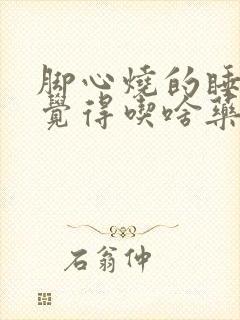 脚心燒的睡
覺得喫啥藥
石翁仲